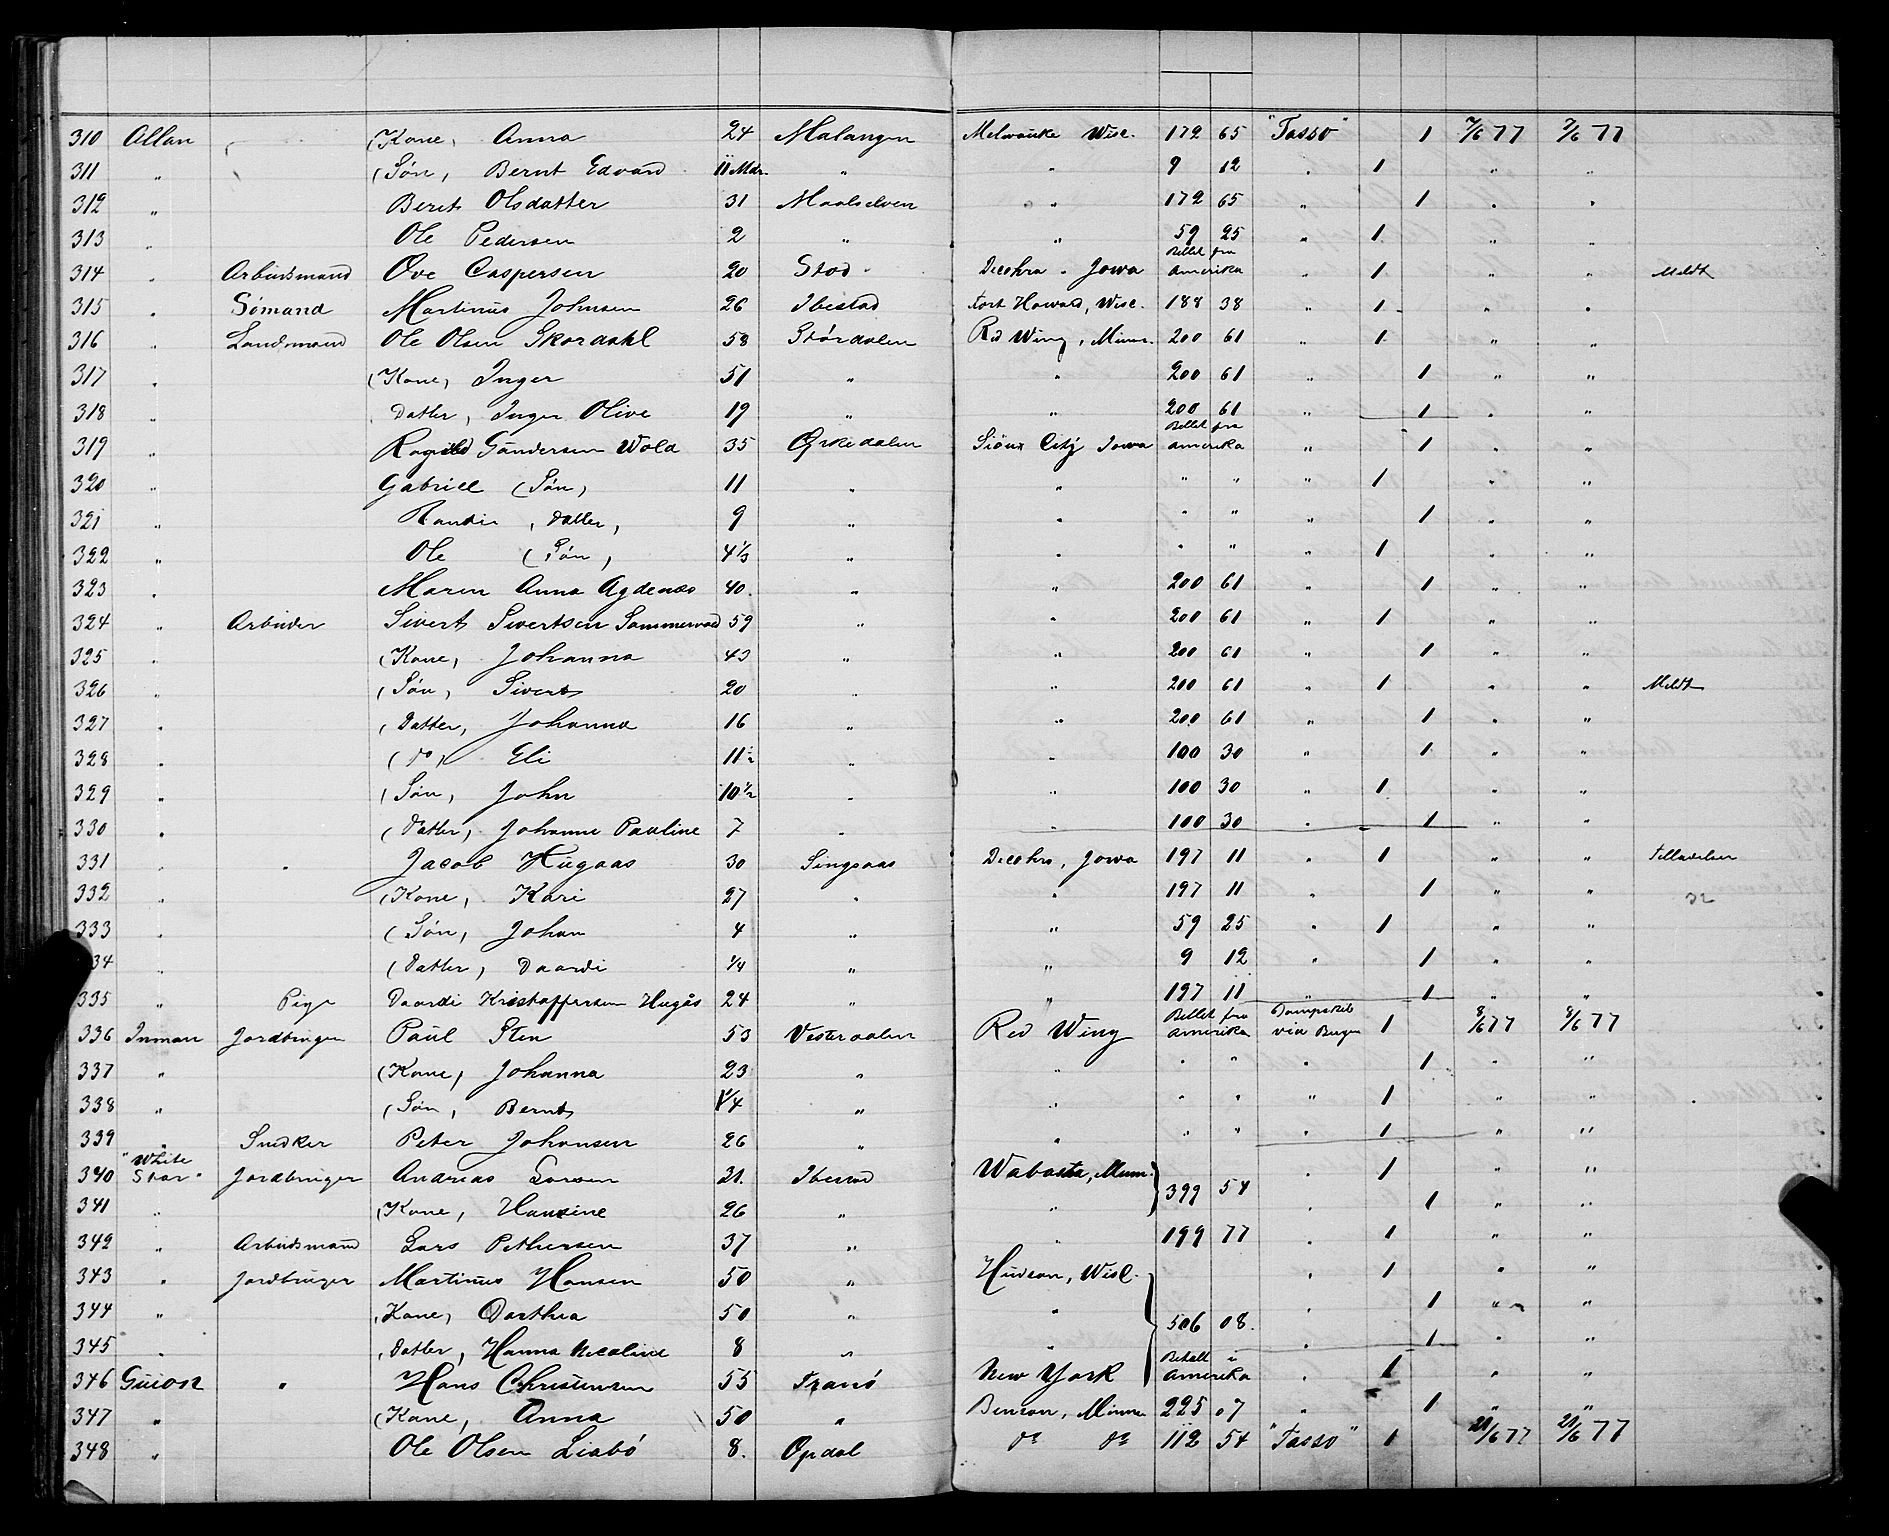 310 Allan " (Kone, Anna 24 Malangen Melwauke Wisc. 179 65 "Tasso" 1 7/6 77 7/6 77
311 " (Søn, Bernt Edvard 11 Mdr. " " 9 12 " 1 " "
312 " Berit Olsdatter 31 Maalselven " 179 65 " 1 " "
313 " Ole Pedersen 2 " " 59 25 " 1 " "
314 " Arbeidsmand Ove Caspersen 20 Stod " Decohra " Jowa Billet fra Amerika " 1 " " Meldt
315 " Sømand Martinus Johnsen 26 Ibestad Fort Howard, Wisc. 188 38 " 1 " "
316 " Landsmand Ole Olsen Skordahl 58 Stördalen Red Wing, Minn. 200 61 " 1 " "
317 " (Kone, Inger 51 " " 200 61 " 1 " "
318 " Datter, Inger Olive 19 " " 200 61 " 1 " "
319 " Ragnild Gundersen Wold 35 Ørkedalen Sioux City Iowa Billet fra Amerika " 1 " "
320 " Gabriel (Søn, 11 " " " " " 1 " "
321 " Randi , Datter, 9 " " " " " 1 " "
322 " Ole (Søn, 4 1/3 " " " " " 1 " "
323 " Maren Anna Agdenæs 40 " " 200 61 " 1 " "
324 " Arbeider Sivert Sivertsen Sommervold 59 " " 200 61 " 1 " "
325 " (Kone, Johanna 43 " " 200 61 " 1 " "
326 " (Søn, Sivert 20 " " 200 61 " 1 " " Meldt
327 " (Datter, Johanna 16 " " 200 61 " 1 " "
328 " (do, Eli 11 1/2 " " 100 30 " 1 " "
329 " (Søn, John 10 1/2 " " 100 30 " 1 " "
330 " (Datter, Johanne Pauline 7 " " 100 30 " 1 " "
331 " " Jacob Hugaas 30 Singsaas Decohra, Jowa 197 11 " 1 " "
332 " (Kone, Kari 27 " " 197 11 " 1 " " 32
333 " (Søn, Johan 4 " " 59 25 " 1 " "
34 " (Datter, Daardi 1/4 " " 9 12 " 1 " "
335 " Pige Daardi Kristoffersen Hugås 24 " " 197 11 " 1 " "
336 Inman Jordbruger Paul Sten 53 Vesteraalen Red Wing Billet fra Amerika Dampskib via Bergen 1 8/6 77 8/6 77
337 " (Kone, Johanna 23 " " " " " 1 " "
338 " (Søn, Bernt 1/4 " " " " " 1 " "
339 " Snedker Peter Johansen 26 " " " " " 1 " "
340 "White Star" Jordbruger Andreas Larsen 21. Ibestad Wabasha, Minn. 399 54 " 1 " "
341 " (Kone, Hansine 26 " " 1 " "
342 " Arbeidsmand Lars Pethersen 37 " " 199 77 " 1 " "
343 " Jordbruger Martinus Hansen 50 " Hudson, Wisc. " 1 " "
344 " (Kone, Dorthea 50 " " 506 08. " 1 " "
345 " (Datter, Hanna Nicoline 8 " " " 1 " "
346 Guion " Hans Christensen 55 Tranö New York Betalt i Amerika " 1 " "
347 " (Kone, Anna 50 " Benson, Minn. 225 07 " 1 " "
348 " Ole Olsen Lisbö 8. Opdal do do 112 54 "Tasso" 1 21/6 77 21/6 77